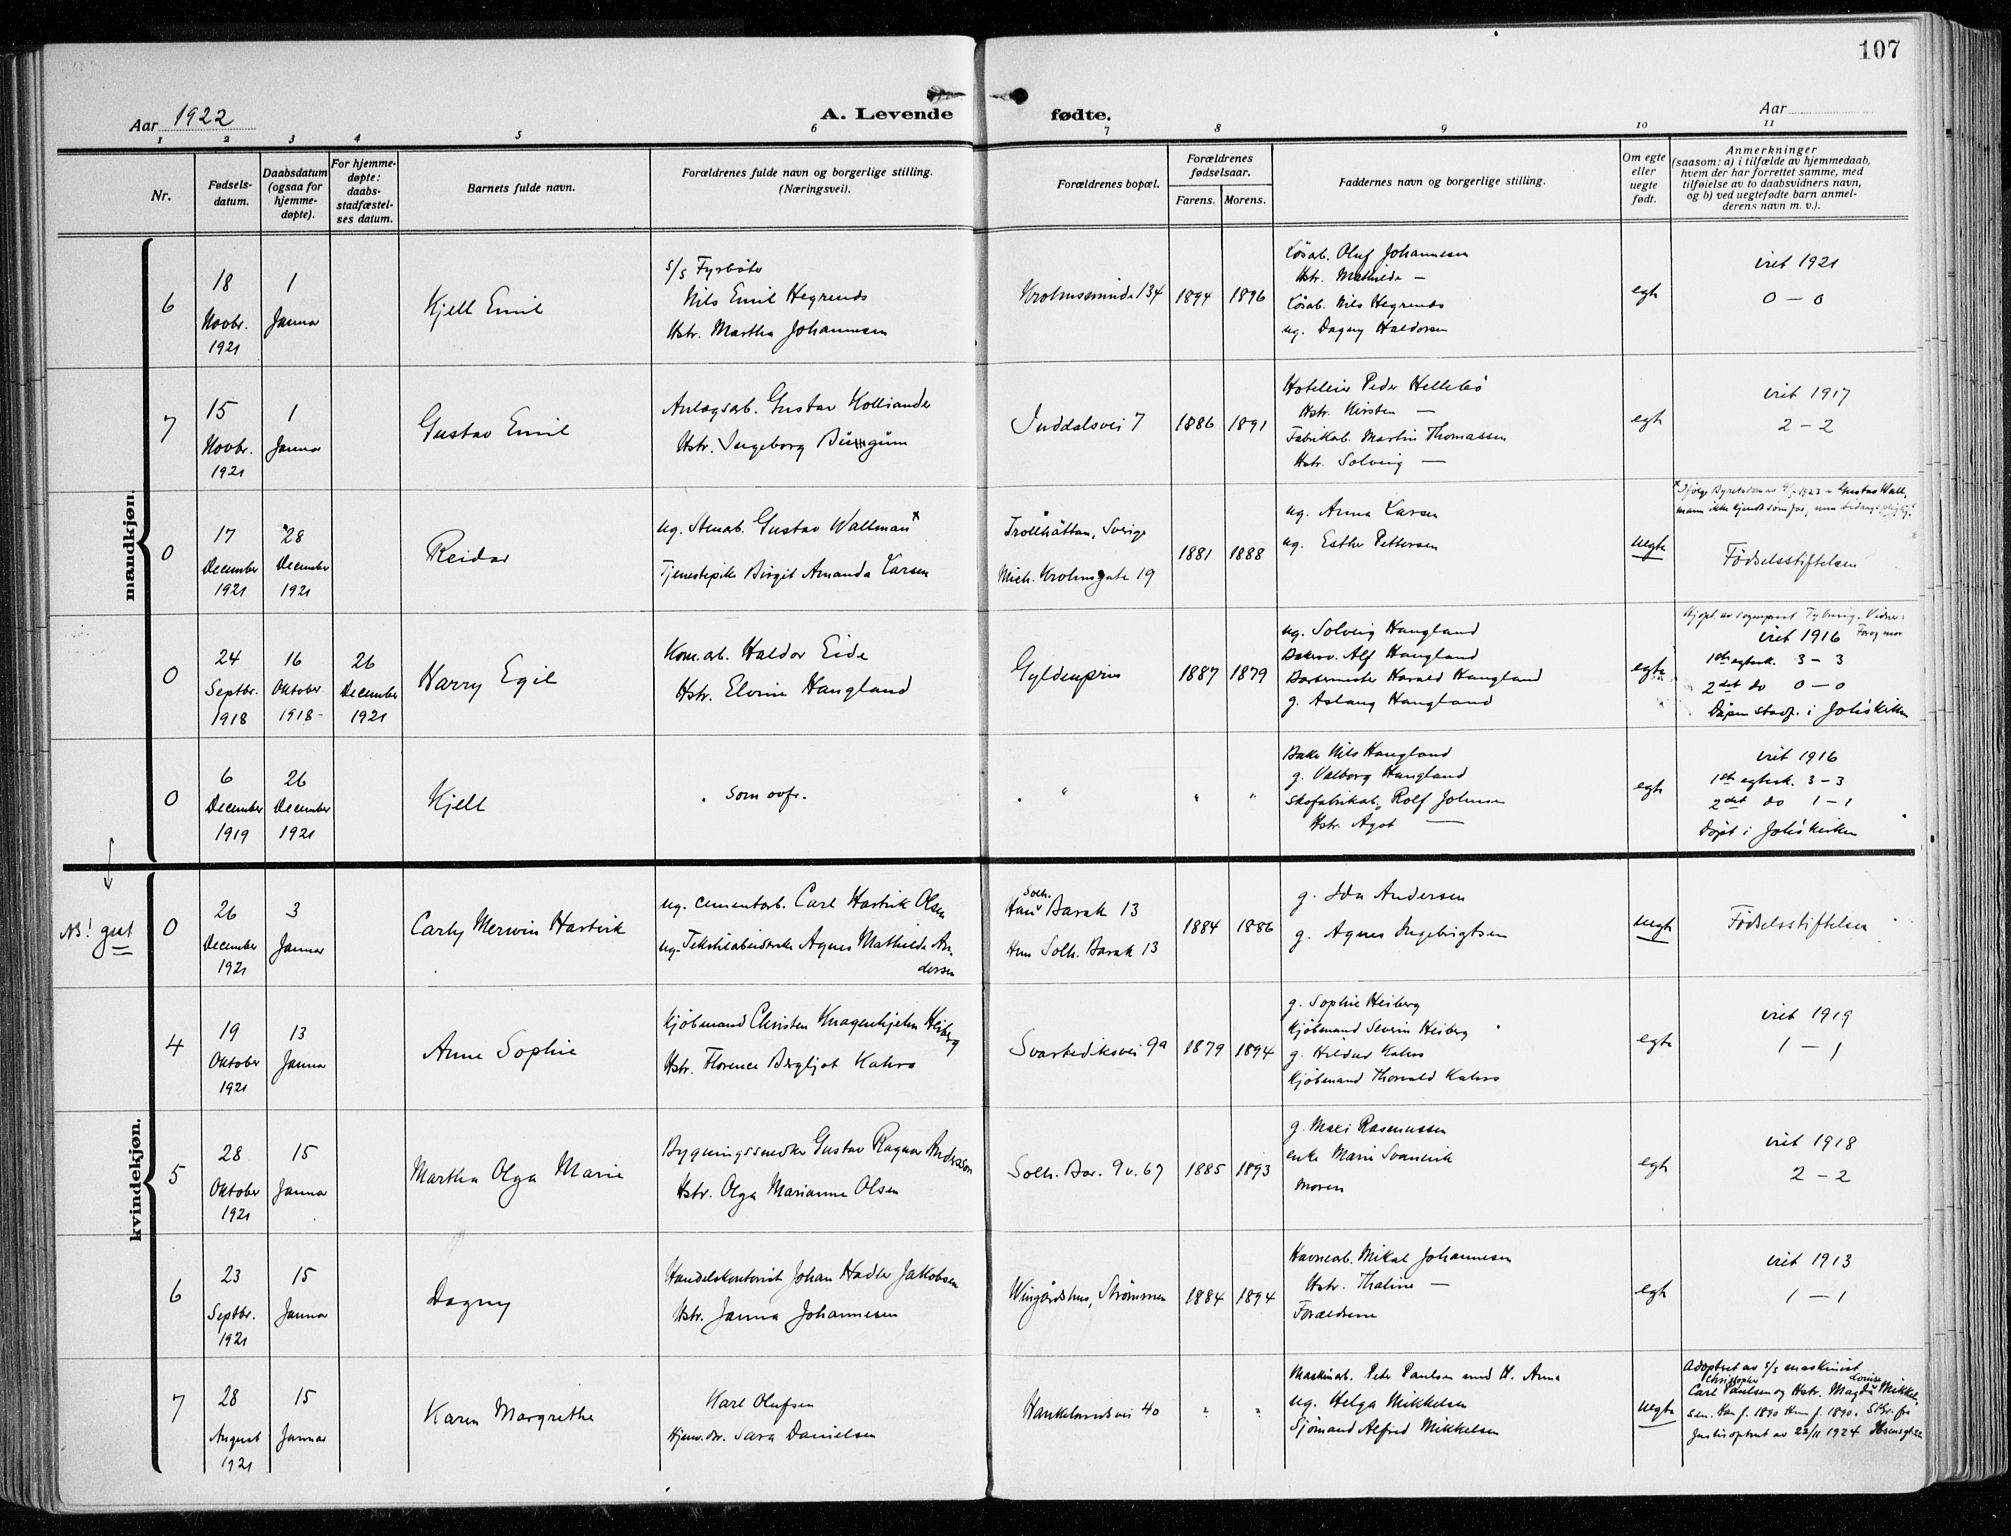 107
Aar 1922
A. Levende fødte.
Aar
1 2 3 4 5 6 7 8 9 10 11
Nr.
Fødsels-
datum.
Daabsdatum
(ogsaa for
hjemme-
døpte).
For hjemme-
døpte:
daabs-
stadfæstel-
ses datum.
Barnets fulde navn.
Forældrenes fulde navn og borgerlige stilling.
(Næringsvei).
Forældrenes bopæl.
Forældrenes
fødselsaar.
Farens. Morens.
Faddernes navn og borgerlige stilling.
Om egte
eller
uegte
født.
Anmerkninger
(saasom: a) i tilfælde av hjemmedaab,
hvem der har forrettet samme, med
tilføielse av to daabsvidners navn,
og b) ved uegtefødte barn anmel-
derens navn m. v.).
mandkjøn.
6
18
Novbr.
1921
1
Januar
Kjell Emil
s/s Fyrbøter
Nils Emil Hegrenes
Hstr. Martha Johannesen
Krohnsminde 134
1894 1896
Løsarb. Oluf Johannesen
Hstr. Mathilde —
Løsarb. Nils Hegrenes
ug. Dagny Haldorsen
egte
viet 1921
0 — 0
7
15
Novbr.
1921
1
Januar
Gustav Emil
Anlægsarb. Gustav Hollander
Hstr. Ingeborg
Inddalsvei 7
1886 1891
Hoteleier Peder Hellebø
Hstr. Kirsten —
Fabrikarb. Martin Thomassen
Hstr. Solveig —
egte
viet 1917
2 — 2
0
17
December
1921
28
December
1921
Reidar
ug. Stenarb. Gustav Wallman x
Tjenestepike Birgit Amanda Larsen
Trollhättan, Sverige
Mich. Krohnsgate 19
1881 1888
ug. Anna Larsen
ug. Esther Pettersen
uegte
x Ifølge Byretsdom av 1923 Gustav Wall-
mann ikke kjendt som far, men bidragspligtig.
Fødselsstiftelsen
0
24
Septbr.
1918
16
Oktober
1918
26
December
1921
Harry Egil
Kom.arb. Haldor Eide
Hstr. Elvine Haugland
Gyldenpris
1887 1879
ug. Solveig Haugland
Alf Haugland
Harald Haugland
g. Aslaug Haugland
egte
Hjdpt. av sogneprest Vidner:
Far og mor
viet 1916
1ste egtesk. 3 — 3
2det do 0 — 0
Dåpen stadf. i Johskirken
0
6
December
1919
26
December
1921
Kjell
" som ovfr.
" "
" "
Baker Nils Haugland
g. Valborg Haugland
Skofabrikarb. Rolf Johnsen
Hstr. Ågot —
egte
viet 1916
1ste egtesk. 3 — 3
2det do 1 — 1
Døpt i Johskirken
kvindekjøn.
NB! gut
0
26
December
1921
3
Januar
Carly Merwin Hartvik
ug. cementarb. Carl Hartvik Olsen
ug. Tekstilarbeiderske Agnes Mathilde An-
dersen
Han Solh. Barak 13
Hun Solh. Barak 13
1884 1886
g. Ida Andersen
g. Agnes Ingebrigtsen
uegte
Fødselsstiftelsen
4
19
Oktober
1921
13
Januar
Anne Sophie
Kjøbmand Christen Knagenhjelm Heiberg
Hstr. Florence Bergljot Kahrs
Svartediksvei 9a
1879 1894
g. Sophie Heiberg
Kjøbmand Severin Heiberg
g. Hildur Kahrs
Kjøbmand Thorvald Kahrs
egte
viet 1919
1 — 1
5
28
Oktober
1921
15
Januar
Martha Olga Marie
Bygningssnedker Gustav Ragnar Andersson
Hstr. Olga Marianne Olsen
Solh. Bar. 9 v. 67
1885 1893
g. Maxi Rasmussen
enke Marie Svanevik
Moren
egte
viet 1918
2 — 2
6
23
Septbr.
1921
15
Januar
Dagny
Handelskontorist Johan Hadler Jakobsen
Hstr. Janna Johannesen
Wingårdshus, Strømmen
1884 1894
Havnearb. Mikal Johannesen
Hstr. Thaline —
Forældrene
egte
viet 1913
1 — 1
7
28
August
1921
15
Januar
Karen Margrethe
Karl Olufsen
Sara Danielsen
Haukelandsvei 40
" "
Maskinarb. Peter Paulsen med H. Anna
ug. Helga Mikkelsen
Sjømand Alfred Mikkelsen
uegte
Adoptert av s/s maskinist
Carl Christopher Paulsen og Hstr. Magda Louise Mikkel-
sen. Han f. 1890 Hun f. 1890. Skr. fra
Justisdeptet av 22/11 1924